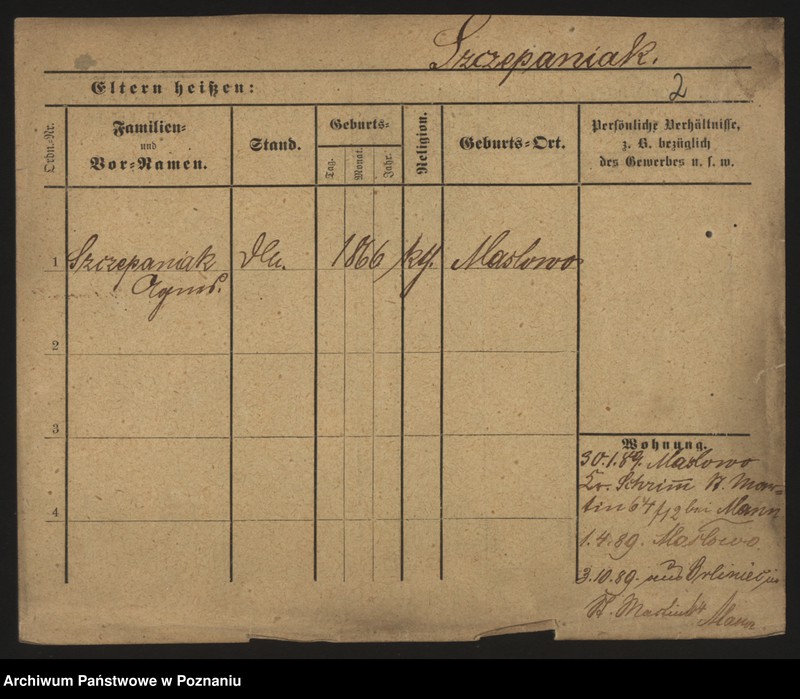 Szczepaniak.
2
Eltern heißen:
Ordn.-Nr.
Familien-
und
Vor-Namen.
Stand.
Geburts-
Tag.
Monat.
Jahr.
Religion.
Geburts-Ort.
Persönliche Verhältnisse,
z. B. bezüglich
des Gewerbes u. s. w.
1
Szczepaniak
Agnes.
1866
kth.
Maslowo
2
3
4
Wohnung.
30.1.89. Maslowo
Kr. Schrimm St. Mar-
tin 64 bei Mann
1.4.89. Maslowo
3.10.89. aus
St. Martin 64 Mann.